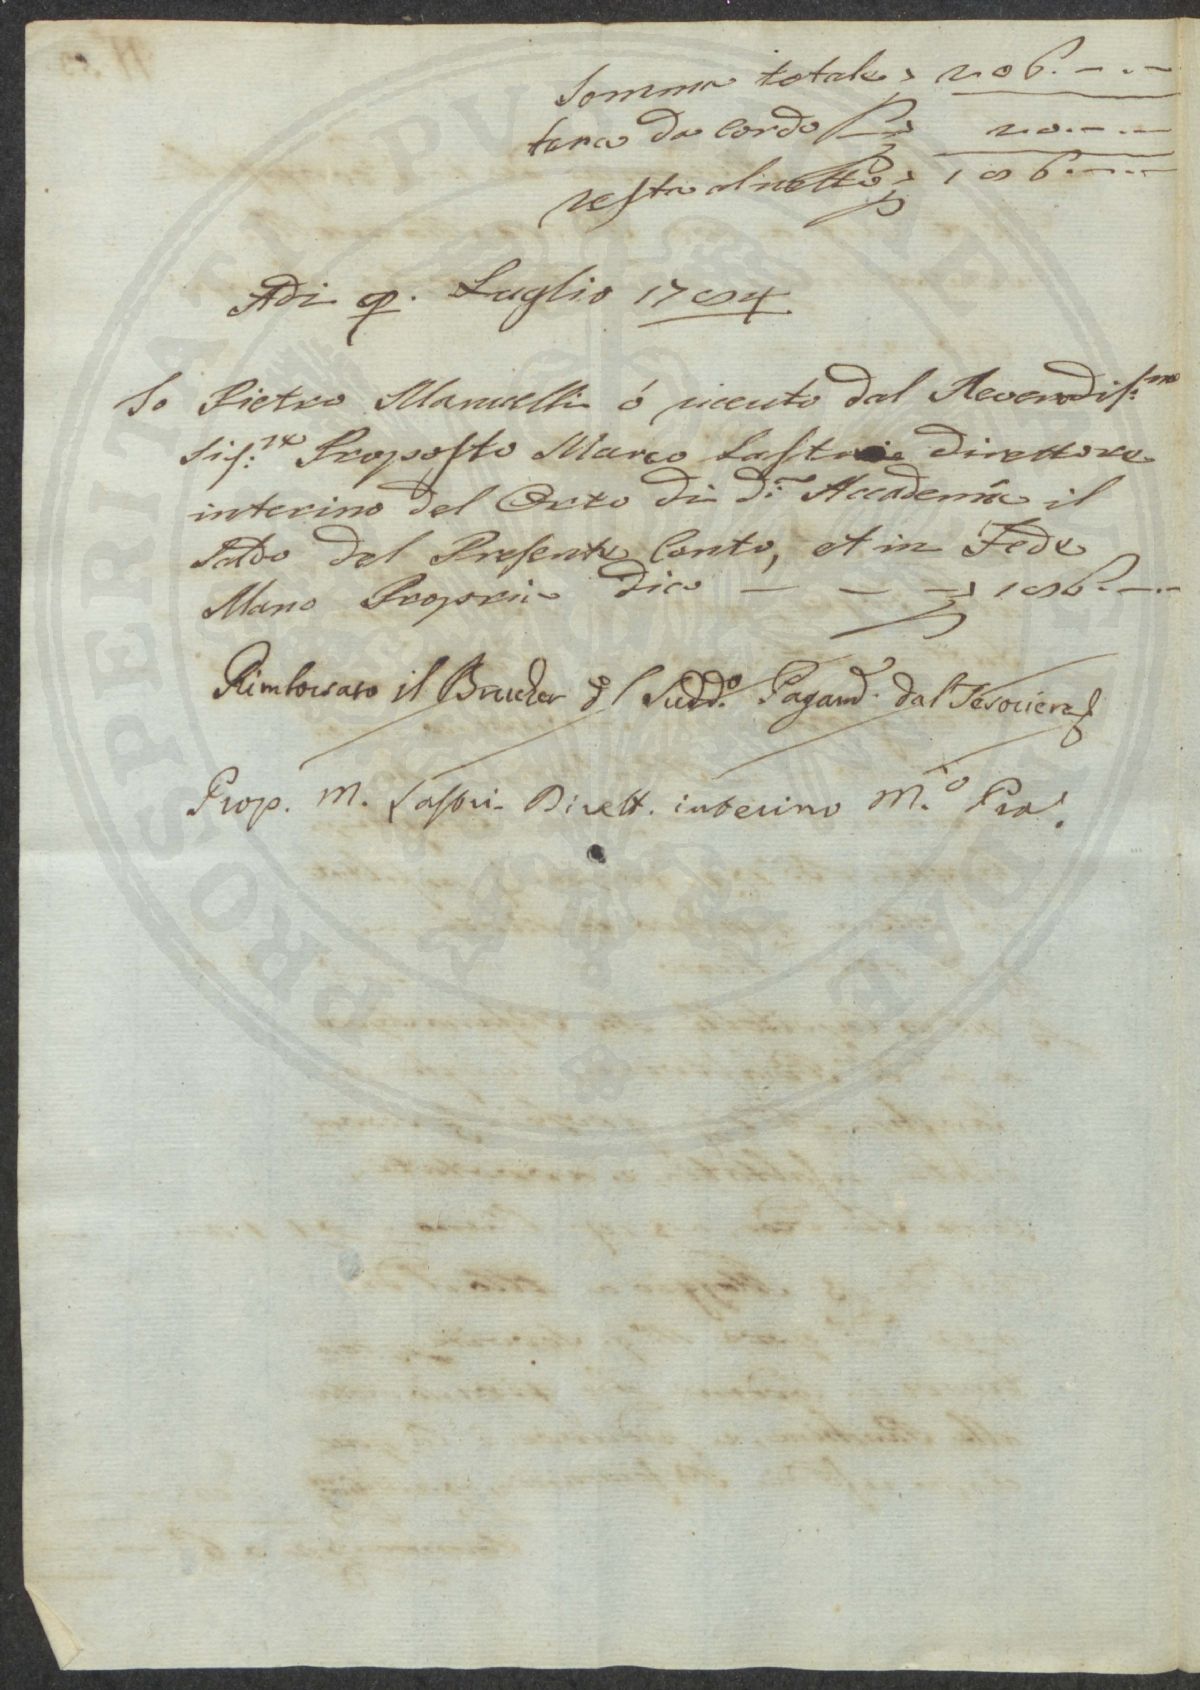 Somma totale £ 206. — . —
tara da cordo £ 20. — . —
resta al netto £ 186. — . —
Adi p.º Luglio 1784
Io Pietro Manuelli ó riceuto dal Reverendis:mo
Sig:re Proposto Marco Lastri Direttore
interino del Orto di d:a Accademia il
saldo del Presente Conto, et in Fede
Mano Propria dico — — — £ 186. — . —
Rimborsato il Brucher del Sudd.º Pagamto. dal Tesoriere
Prop. M. Lastri Dirett. interino M.º Pra.
PROSPERITATI PUBLICAE AUGENDAE